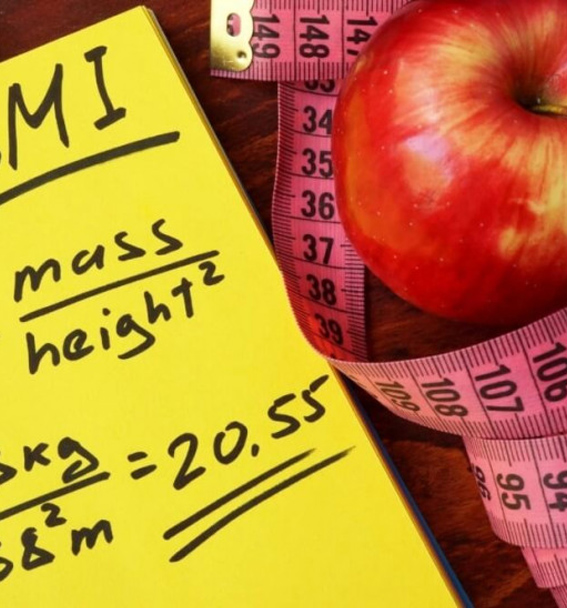 MI
mass
height²
kg = 20.55
8²m
149 148
34
35
36
37
38
39
109 108 107 106
95 94